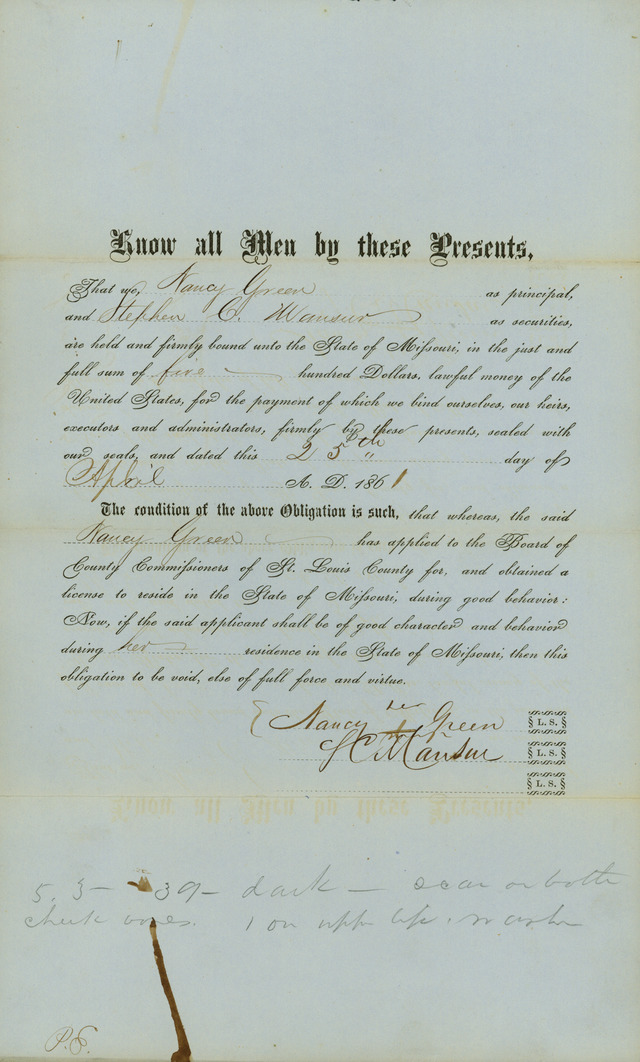 Know all Men by these Presents,
That we, Nancy Green as principal,
and Stephen C. Mansur as securities,
are held and firmly bound unto the State of Missouri, in the just and
full sum of five hundred Dollars, lawful money of the
United States, for the payment of which we bind ourselves, our heirs,
executors and administrators, firmly by these presents, sealed with
our seals, and dated this 25th day of
April A. D. 1861
The condition of the above Obligation is such, that whereas, the said
Nancy Green has applied to the Board of
County Commissioners of St. Louis County for, and obtained a
license to reside in the State of Missouri, during good behavior:
Now, if the said applicant shall be of good character and behavior
during her residence in the State of Missouri, then this
obligation to be void, else of full force and virtue.
Nancy Green L. S.
S C Mansur L. S.
L. S.
5. 3 - 39 - dark - scar on both
cheek ones. 1 on upp lip. washer